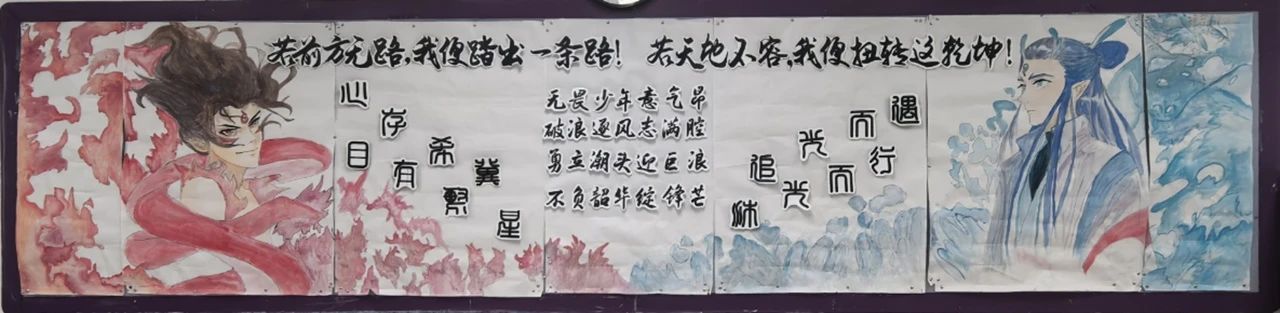 若前方无路,我便踏出一条路! 若天地不容,我便扭转这乾坤!
心存希冀
目有繁星
无畏少年意气昂
破浪逐风志满腔
勇立潮头迎巨浪
不负韶华绽锋芒
追光而遇
沐光而行